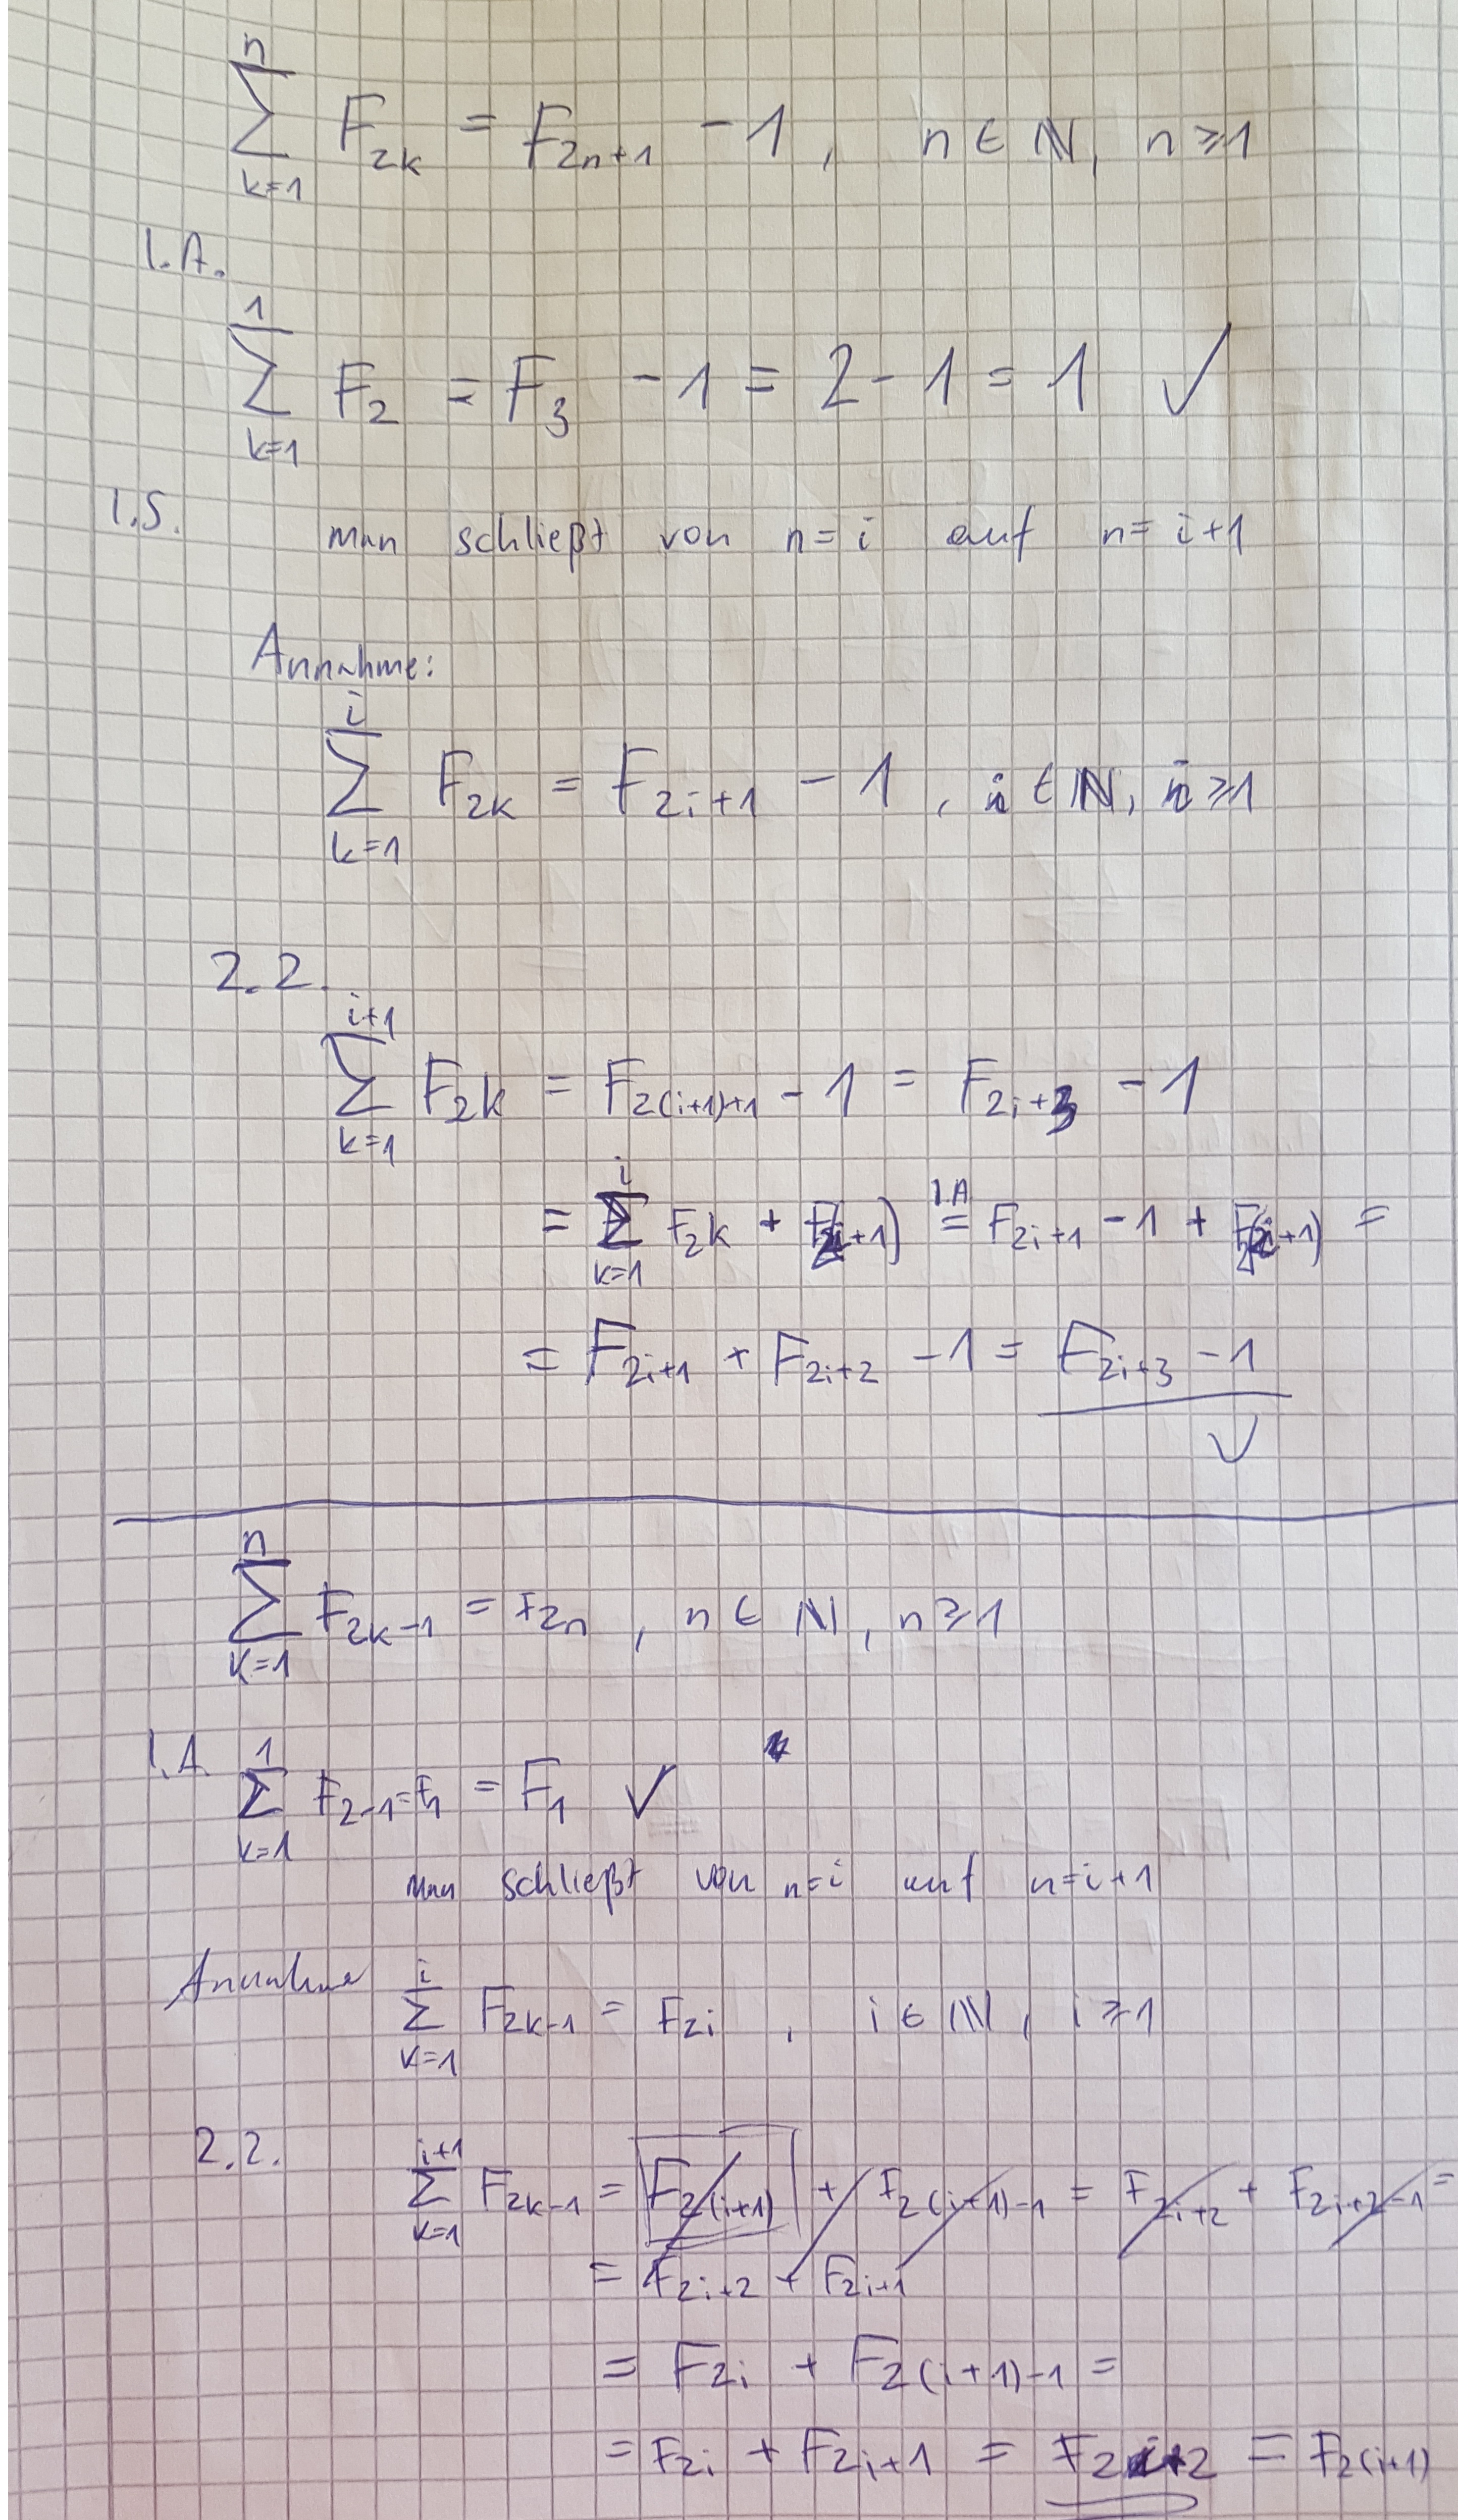 n
∑ F_{2k} = F_{2n+1} - 1 , n ∈ ℕ, n ≥ 1
k=1
I.A.
1
∑ F_2 = F_3 - 1 = 2 - 1 = 1 ✓
k=1
I.S. man schließt von n = i auf n = i+1
Annahme:
i
∑ F_{2k} = F_{2i+1} - 1 , i ∈ ℕ, i ≥ 1
k=1
2.2.
i+1
∑ F_{2k} = F_{2(i+1)+1} - 1 = F_{2i+3} - 1
k=1
i
= ∑ F_{2k} + F_{2(i+1)} I.A = F_{2i+1} - 1 + F_{2(i+1)} =
k=1
= F_{2i+1} + F_{2i+2} - 1 = F_{2i+3} - 1
✓
n
∑ F_{2k-1} = F_{2n} , n ∈ ℕ, n ≥ 1
k=1
I.A. 1
∑ F_{2-1} = F_1 = F_1 ✓
k=1
man schließt von n=i auf n=i+1
Annahme i
∑ F_{2k-1} = F_{2i} , i ∈ ℕ, i ≥ 1
k=1
2.2. i+1
∑ F_{2k-1} = F_{2(i+1)} + F_{2(i+1)-1} = F_{2i+2} + F_{2i+2-1} =
k=1
= F_{2i+2} + F_{2i+1}
= F_{2i} + F_{2(i+1)-1} =
= F_{2i} + F_{2i+1} = F_{2i+2} = F_{2(i+1)}